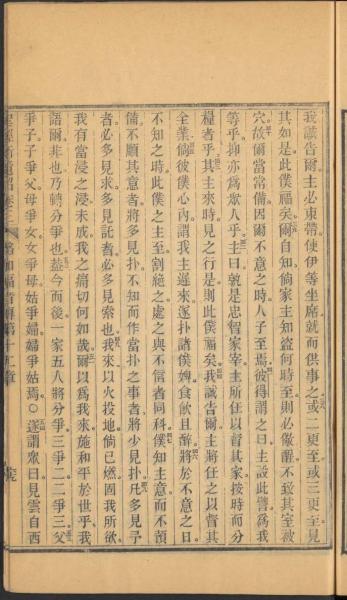 我誠告爾主必束帶使伊等坐席就而供事之或二更至或三更至見
其如是此僕福矣爾自知倘家主知盜何時至則必儆醒不致其室被
穴故爾當常備因爾不意之時人子至焉彼得謂之曰主設此譬為我
等乎抑亦為眾人乎主曰孰是忠智家宰主所任以督其家按時而分
糧者乎其主來時見之行是則此僕福矣我誠告爾主將任之以督其
全業倘彼僕心內謂我主遲來遂扑諸僕婢食飲且醉將於不意之日
不知之時此僕之主至割絕之處之與不信者同科僕知主意而不預
備不順其意者將多見扑不知而作當扑之事者將少見扑凡多見予
者必多見求多見託者必多見索也我來以火投地倘已燃固我所欲
我有當浸之浸未成我之痛切何如哉爾以為我來施和平於世乎我
語爾非也乃轉分爭也蓋今而後一家五人將分爭三爭二二爭三父
爭子子爭父母爭女女爭母姑爭婦婦爭姑焉○遂謂眾曰見雲自西
路加福音傳第十二章